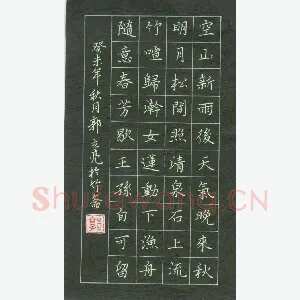 空山新雨後天氣晚來秋
明月松間照清泉石上流
竹喧歸澣女蓮動下漁舟
隨意春芳歇王孫自可留
癸未年秋月郭立亮於竹斋